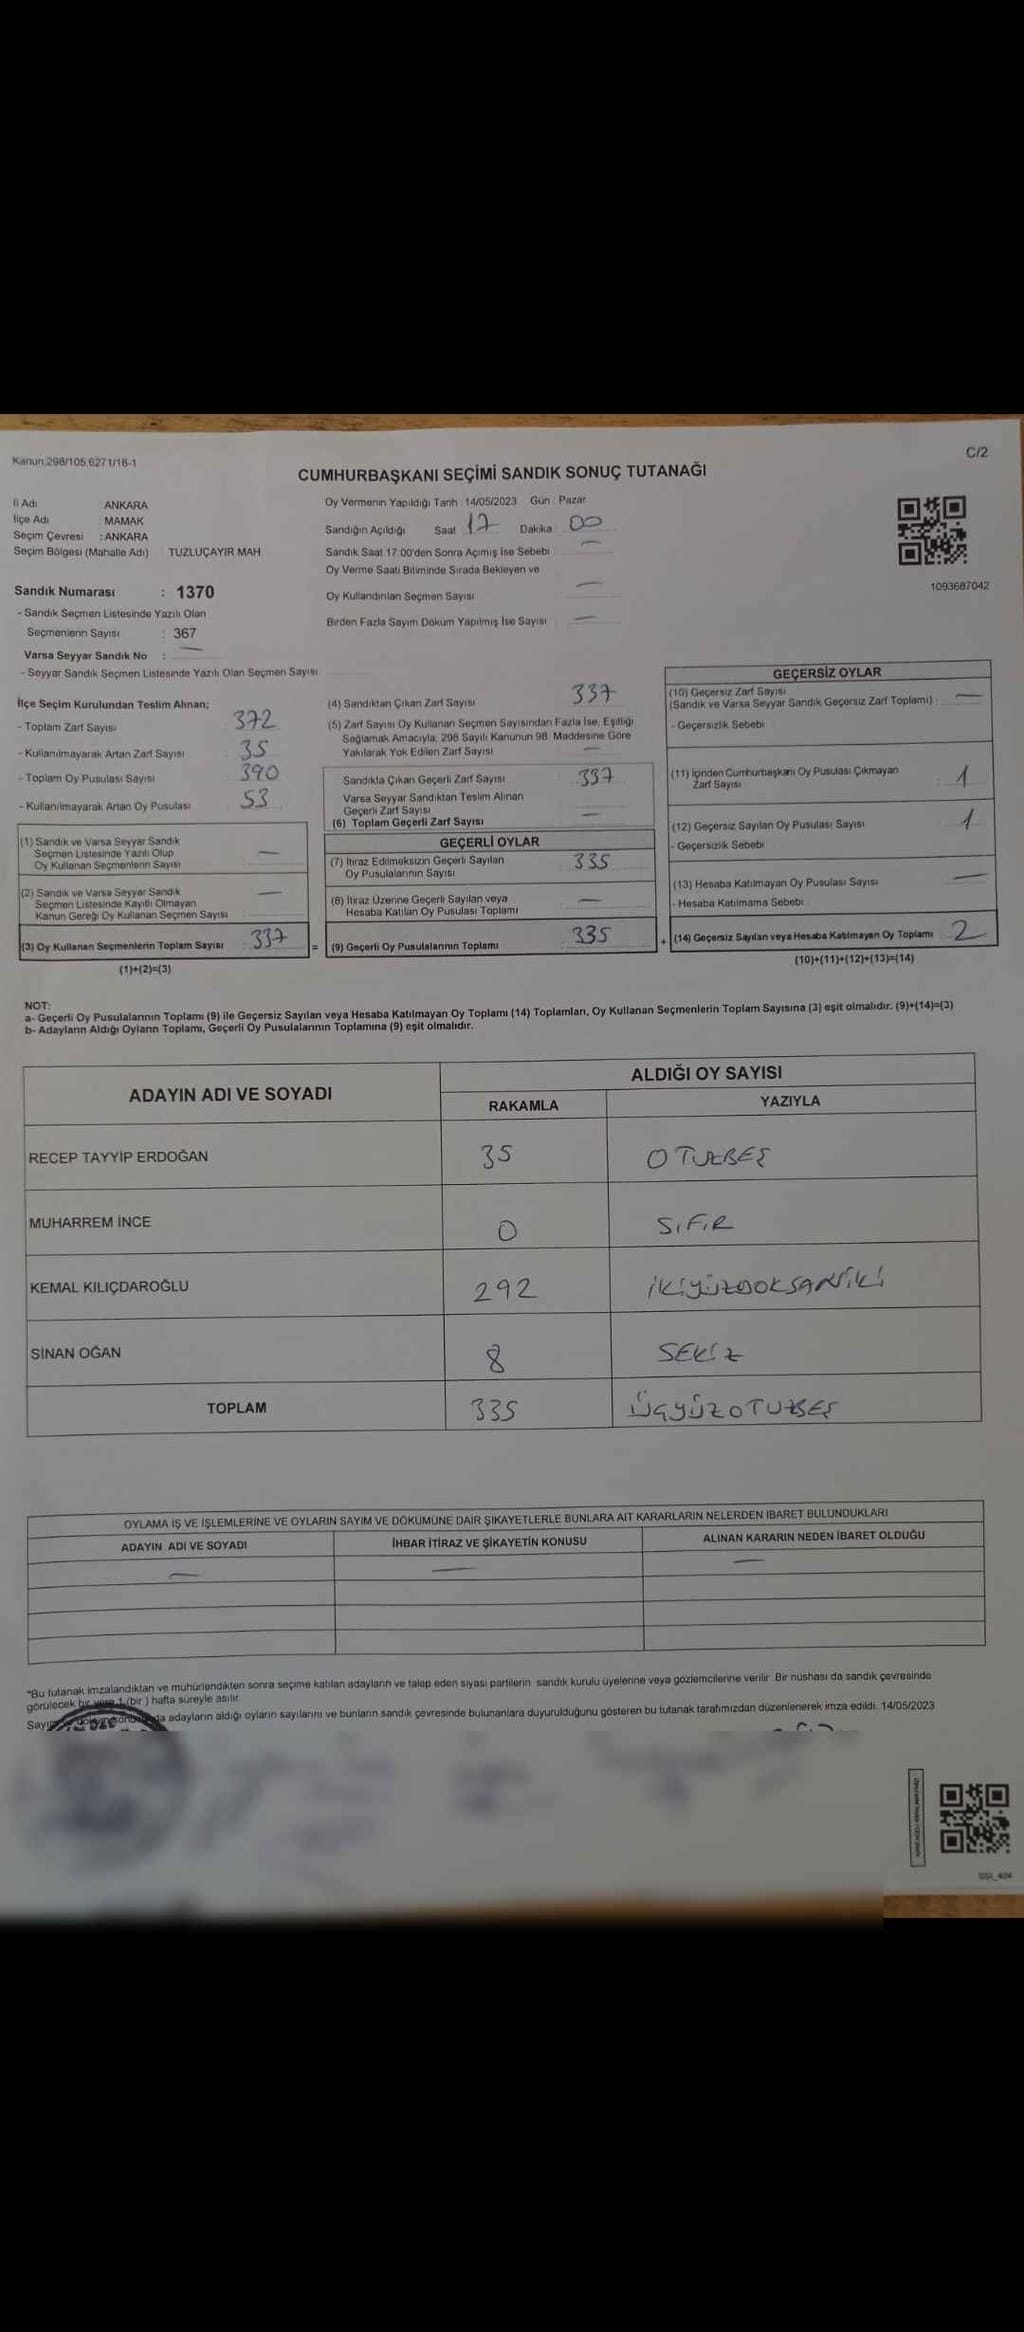 Kanun:298/105,6271/18-1
C/2
CUMHURBAŞKANI SEÇİMİ SANDIK SONUÇ TUTANAĞI
İl Adı : ANKARA
İlçe Adı : MAMAK
Seçim Çevresi : ANKARA
Seçim Bölgesi (Mahalle Adı) TUZLUÇAYIR MAH.
Oy Vermenin Yapıldığı Tarih :14/05/2023 Gün : Pazar
Sandığın Açıldığı Saat 17 Dakika 00
Sandık Saat 17:00'den Sonra Açımış İse Sebebi —
Oy Verme Saati Bitiminde Sırada Bekleyen ve
Oy Kullandırılan Seçmen Sayısı —
Birden Fazla Sayım Döküm Yapılmış İse Sayısı —
1093687042
Sandık Numarası : 1370
- Sandık Seçmen Listesinde Yazılı Olan
Seçmenlerin Sayısı : 367
Varsa Seyyar Sandık No : —
- Seyyar Sandık Seçmen Listesinde Yazılı Olan Seçmen Sayısı
İlçe Seçim Kurulundan Teslim Alınan;
- Toplam Zarf Sayısı : 372
- Kullanılmayarak Artan Zarf Sayısı : 35
- Toplam Oy Pusulası Sayısı : 390
- Kullanılmayarak Artan Oy Pusulası : 53
(1) Sandık ve Varsa Seyyar Sandık
Seçmen Listesinde Yazılı Olup
Oy Kullanan Seçmenlerin Sayısı —
(2) Sandık ve Varsa Seyyar Sandık
Seçmen Listesinde Kayıtlı Olmayan
Kanun Gereği Oy Kullanan Seçmen Sayısı —
(3) Oy Kullanan Seçmenlerin Toplam Sayısı : 337
(1)+(2)=(3)
(4) Sandıktan Çıkan Zarf Sayısı 337
(5) Zarf Sayısı Oy Kullanan Seçmen Sayısından Fazla İse, Eşitliği
Sağlamak Amacıyla, 298 Sayılı Kanunun 98. Maddesine Göre
Yakılarak Yok Edilen Zarf Sayısı —
Sandıkta Çıkan Geçerli Zarf Sayısı : 337
Varsa Seyyar Sandıktan Teslim Alınan
Geçerli Zarf Sayısı —
(6) Toplam Geçerli Zarf Sayısı
GEÇERLİ OYLAR
(7) İtiraz Edilmeksizin Geçerli Sayılan
Oy Pusulalarının Sayısı : 335
(8) İtiraz Üzerine Geçerli Sayılan veya
Hesaba Katılan Oy Pusulası Toplamı : —
= (9) Geçerli Oy Pusulalarının Toplamı : 335
GEÇERSİZ OYLAR
(10) Geçersiz Zarf Sayısı
(Sandık ve Varsa Seyyar Sandık Geçersiz Zarf Toplamı) : —
- Geçersizlik Sebebi
(11) İçinden Cumhurbaşkanı Oy Pusulası Çıkmayan
Zarf Sayısı : 1
(12) Geçersiz Sayılan Oy Pusulası Sayısı : 1
- Geçersizlik Sebebi
(13) Hesaba Katılmayan Oy Pusulası Sayısı : —
- Hesaba Katılmama Sebebi
+ (14) Geçersiz Sayılan veya Hesaba Katılmayan Oy Toplamı : 2
(10)+(11)+(12)+(13)=(14)
NOT:
a- Geçerli Oy Pusulalarının Toplamı (9) ile Geçersiz Sayılan veya Hesaba Katılmayan Oy Toplamı (14) Toplamları, Oy Kullanan Seçmenlerin Toplam Sayısına (3) eşit olmalıdır. (9)+(14)=(3)
b- Adayların Aldığı Oyların Toplamı, Geçerli Oy Pusulalarının Toplamına (9) eşit olmalıdır.
ADAYIN ADI VE SOYADI
ALDIĞI OY SAYISI
RAKAMLA YAZIYLA
RECEP TAYYİP ERDOĞAN 35 OTUZBEŞ
MUHARREM İNCE 0 SIFIR
KEMAL KILIÇDAROĞLU 292 İKİYÜZDOKSANİKİ
SİNAN OĞAN 8 SEKİZ
TOPLAM 335 ÜÇYÜZOTUZBEŞ
OYLAMA İŞ VE İŞLEMLERİNE VE OYLARIN SAYIM VE DÖKÜMÜNE DAİR ŞİKAYETLERLE BUNLARA AİT KARARLARIN NELERDEN İBARET BULUNDUKLARI
ADAYIN ADI VE SOYADI İHBAR İTİRAZ VE ŞİKAYETİN KONUSU ALINAN KARARIN NEDEN İBARET OLDUĞU
— — —
*Bu tutanak imzalandıktan ve mühürlendikten sonra seçime katılan adayların ve talep eden siyasi partilerin sandık kurulu üyelerine veya gözlemcilerine verilir. Bir nüshası da sandık çevresinde
görülecek bir yere 1 (bir) hafta süreyle asılır.
adayların aldığı oyların sayılarını ve bunların sandık çevresinde bulunanlara duyurulduğunu gösteren bu tutanak tarafımızdan düzenlenerek imza edildi. 14/05/2023
SSI_404